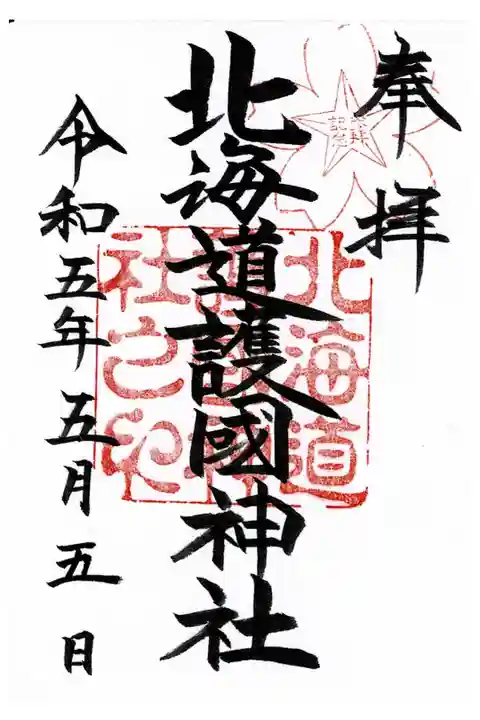 奉拝
参拝
記念
北海道護國神社
北海道
護國神
社之印
令和五年五月五日